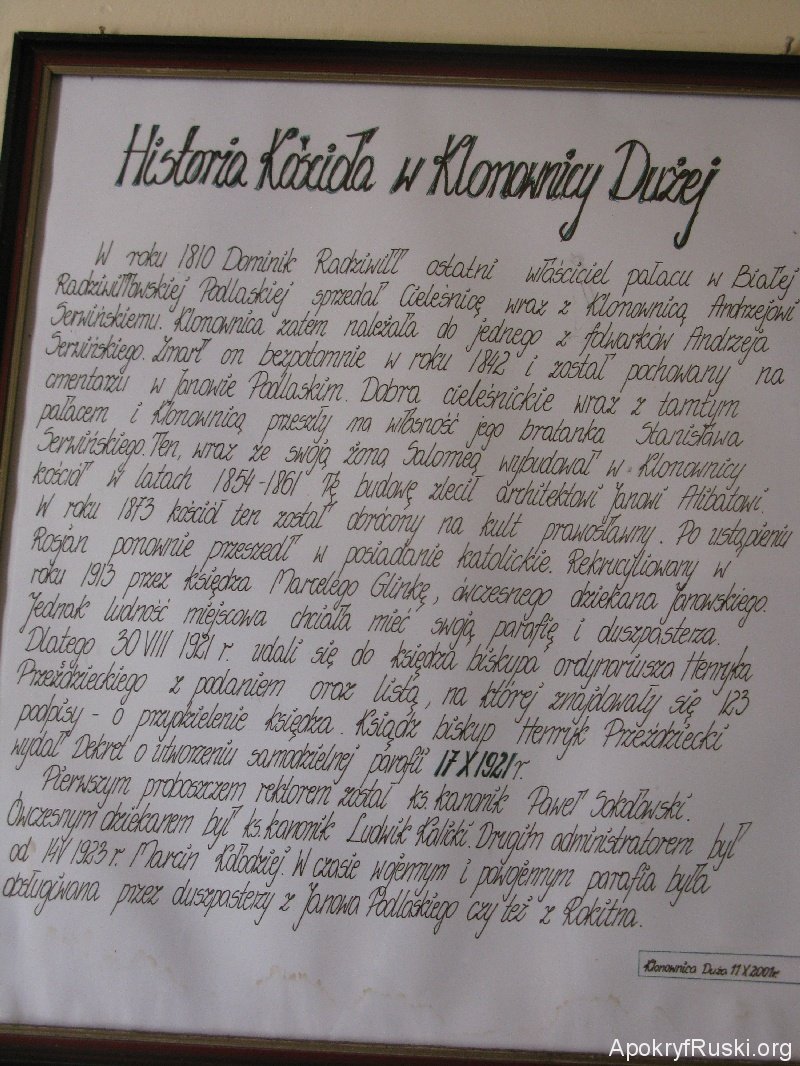 Historia Kościoła w Klonownicy Dużej
W roku 1810 Dominik Radziwiłł ostatni właściciel pałacu w Białej
Radziwiłłowskiej Podlaskiej sprzedał Cieleśnicę wraz z Klonownicą Andrzejowi
Serwińskiemu. Klonownica zatem należała do jednego z folwarków Andrzeja
Serwińskiego. Zmarł on bezpotomnie w roku 1842 i został pochowany na
cmentarzu w Janowie Podlaskim. Dobra cieleśnickie wraz z tamtym
pałacem i Klonownicą przeszły na własność jego bratanka Stanisława
Serwińskiego. Ten, wraz ze swoją żoną Salomeą wybudował w Klonownicy
kościół w latach 1854-1861 Tę budowę zlecił architektowi Janowi Alibatowi.
W roku 1873 kościół ten został obrócony na kult prawosławny. Po ustąpieniu
Rosjan ponownie przeszedł w posiadanie katolickie. Rekoncyliowany w
roku 1913 przez księdza Marcelego Glinkę, ówczesnego dziekana Janowskiego.
Jednak ludność miejscowa chciała mieć swoją parafię i duszpasterza.
Dlatego 30 VIII 1921 r. udali się do księdza biskupa ordynariusza Henryka
Przeździeckiego z podaniem oraz listą, na której znajdowały się 123
podpisy - o przydzielenie księdza. Ksiądz biskup Henryk Przeździecki
wydał Dekret o utworzeniu samodzielnej parafii 17 X 1921 r.
Pierwszym proboszczem rektorem został ks. kanonik Paweł Sokołowski.
Ówczesnym dziekanem był ks. kanonik Ludwik Kalicki. Drugim administratorem był
od 14 V 1923 r. Marcin Kołodziej. W czasie wojennym i powojennym parafia była
obsługiwana przez duszpasterzy z Janowa Podlaskiego czy też z Rokitna.
Klonownica Duża 11 X 2001r.
ApokryfRuski.org